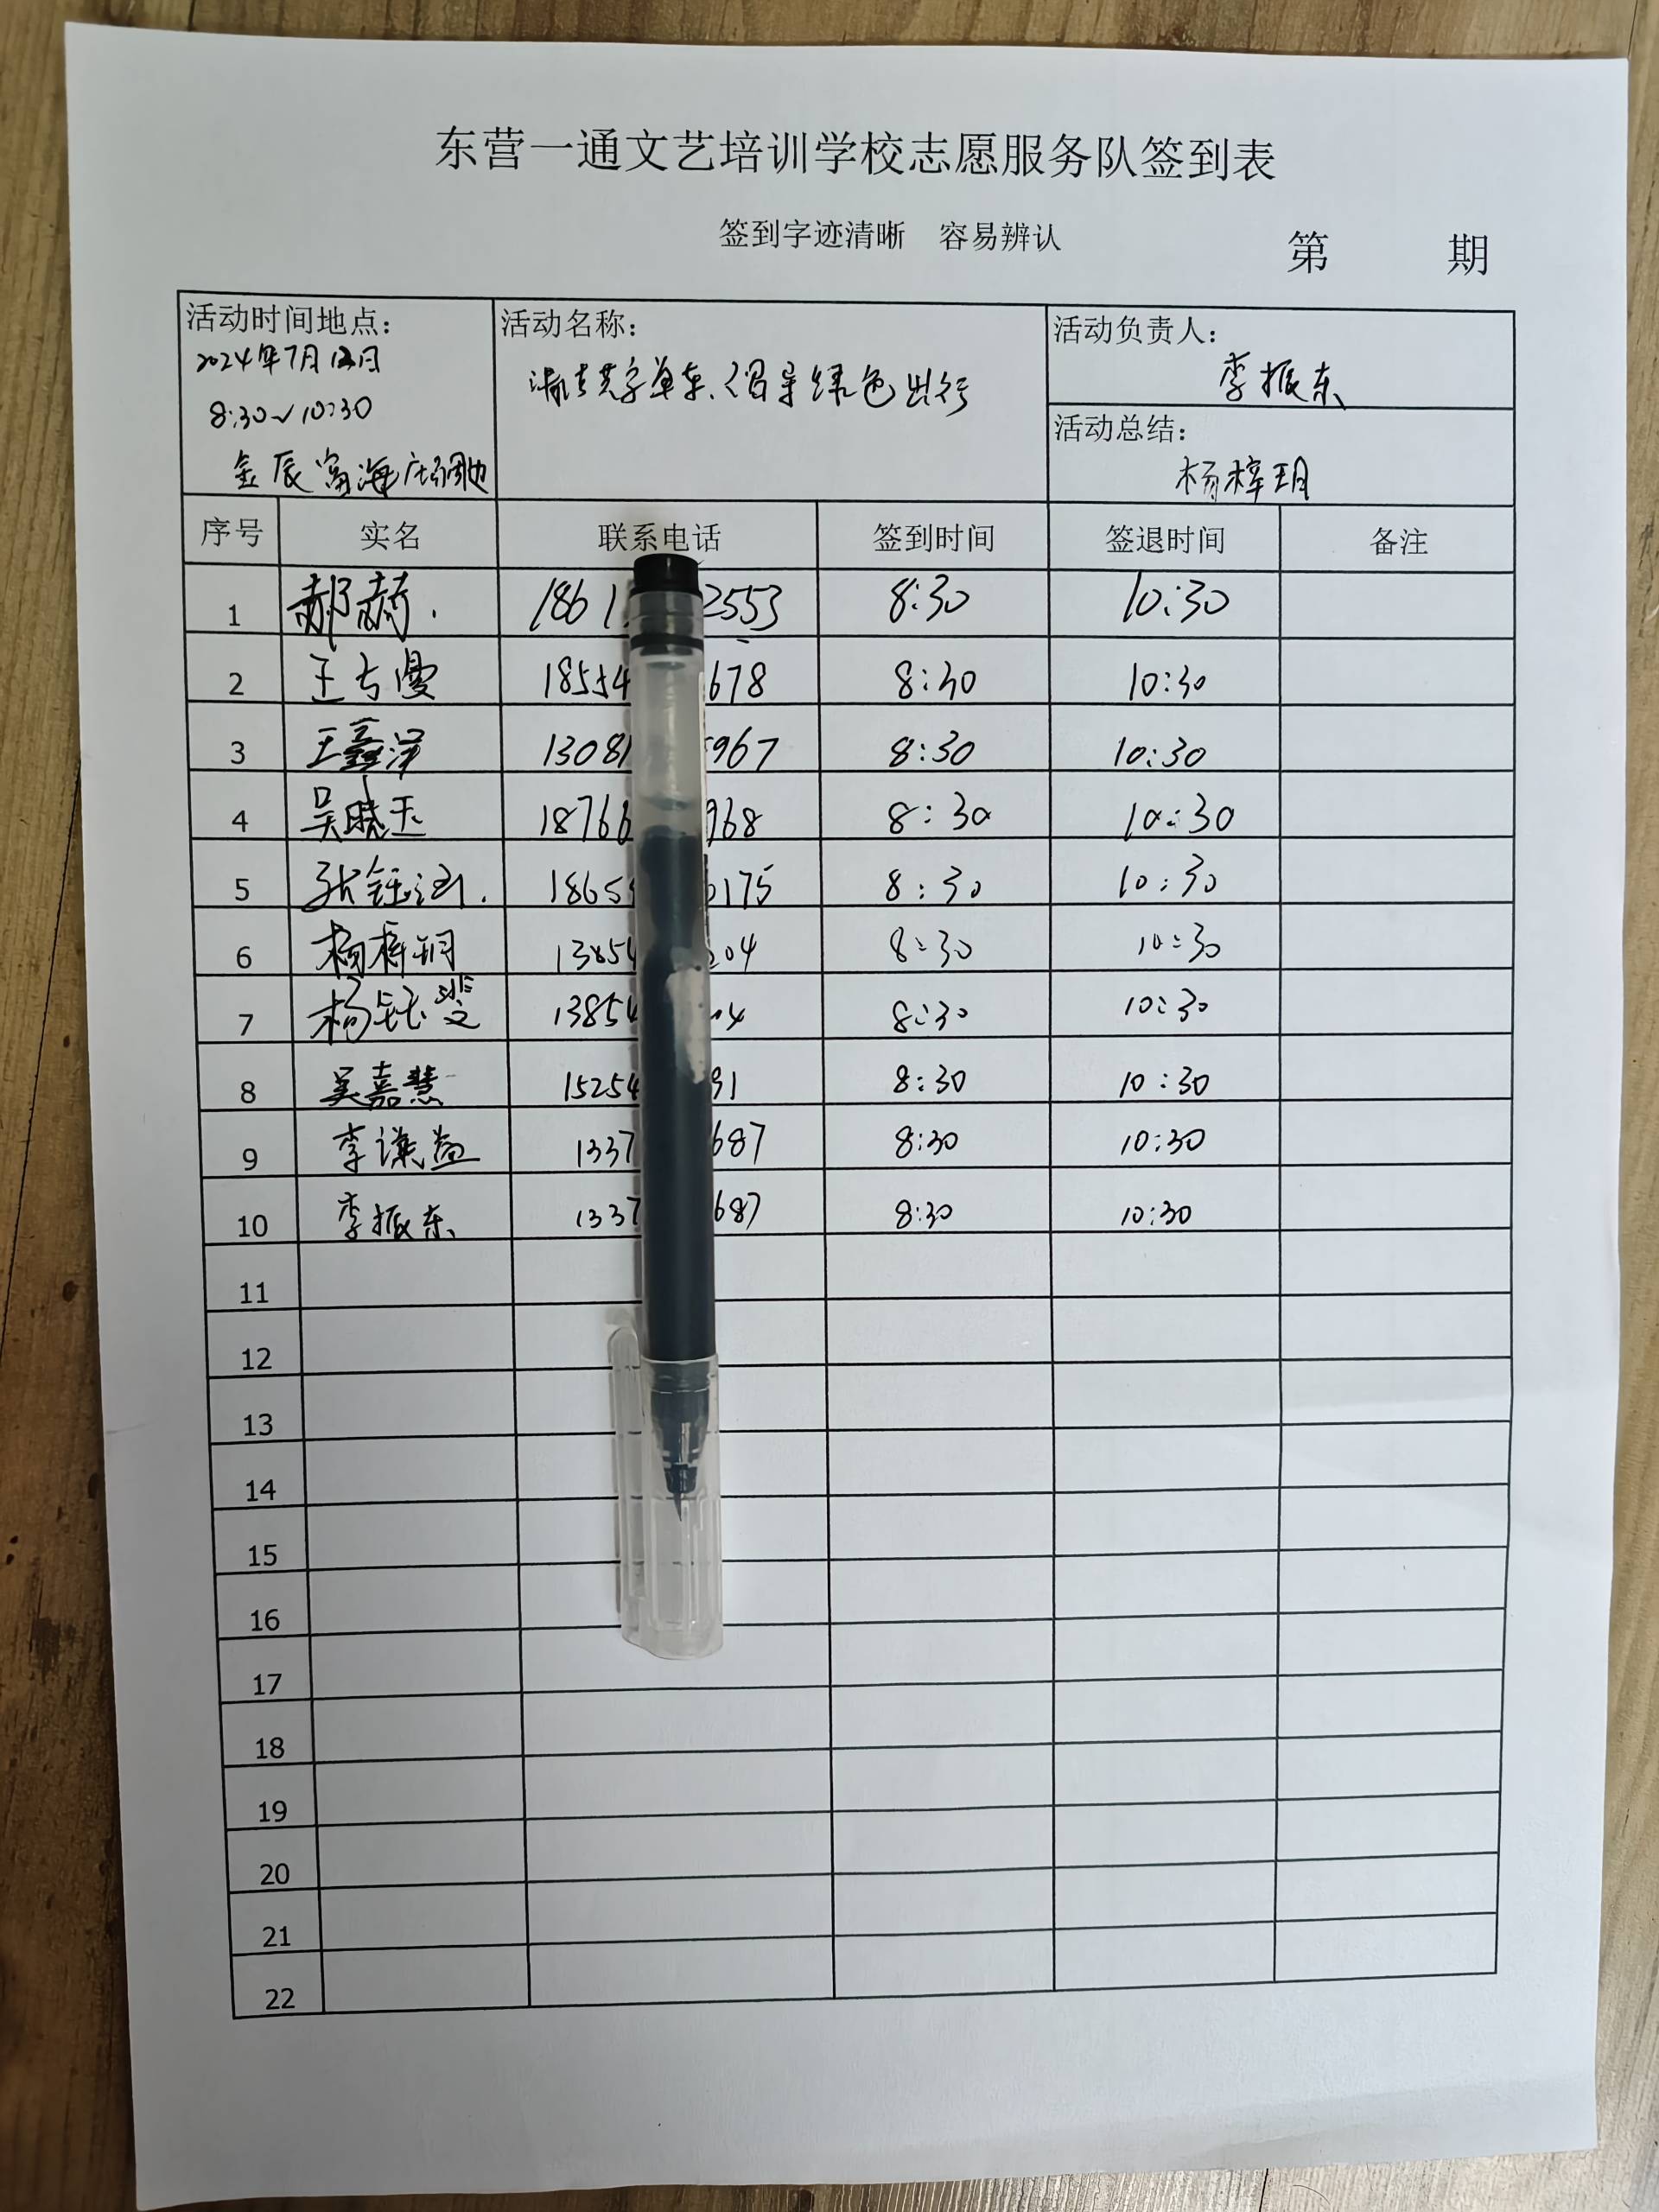 东营一通文艺培训学校志愿服务队签到表
签到字迹清晰 容易辨认
第 期
活动时间地点：
2024年7月日
8:30~10:30
金辰富海广场
活动名称：
清洁共享单车、倡导绿色出行
活动负责人：
李振东
活动总结：
杨梓玥
序号 实名 联系电话 签到时间 签退时间 备注
1 郝赫 1861 2553 8:30 10:30
2 王 1854 678 8:30 10:30
3 王鑫泽 13081 967 8:30 10:30
4 吴晓玉 18766 968 8:30 10:30
5 张钰 1865 175 8:30 10:30
6 杨梓玥 13854 204 8:30 10:30
7 杨 13854 04 8:30 10:30
8 吴嘉慧 15254 91 8:30 10:30
9 李谦益 1337 687 8:30 10:30
10 李振东 1337 687 8:30 10:30
11
12
13
14
15
16
17
18
19
20
21
22